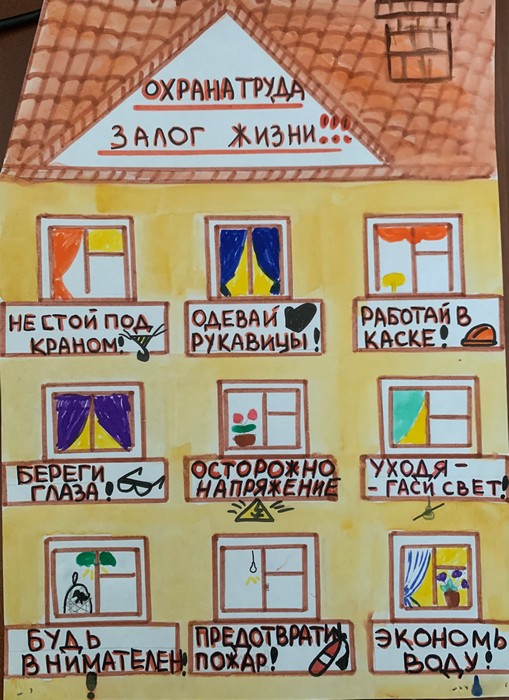 ОХРАНА ТРУДА
ЗАЛОГ ЖИЗНИ!!!
НЕ СТОЙ ПОД
КРАНОМ!
ОДЕВАЙ
РУКАВИЦЫ!
РАБОТАЙ В
КАСКЕ!
БЕРЕГИ
ГЛАЗА!
ОСТОРОЖНО
НАПРЯЖЕНИЕ
УХОДЯ -
- ГАСИ СВЕТ!
БУДЬ
ВНИМАТЕЛЕН!
ПРЕДОТВРАТИ
ПОЖАР!
ЭКОНОМЬ
ВОДУ!